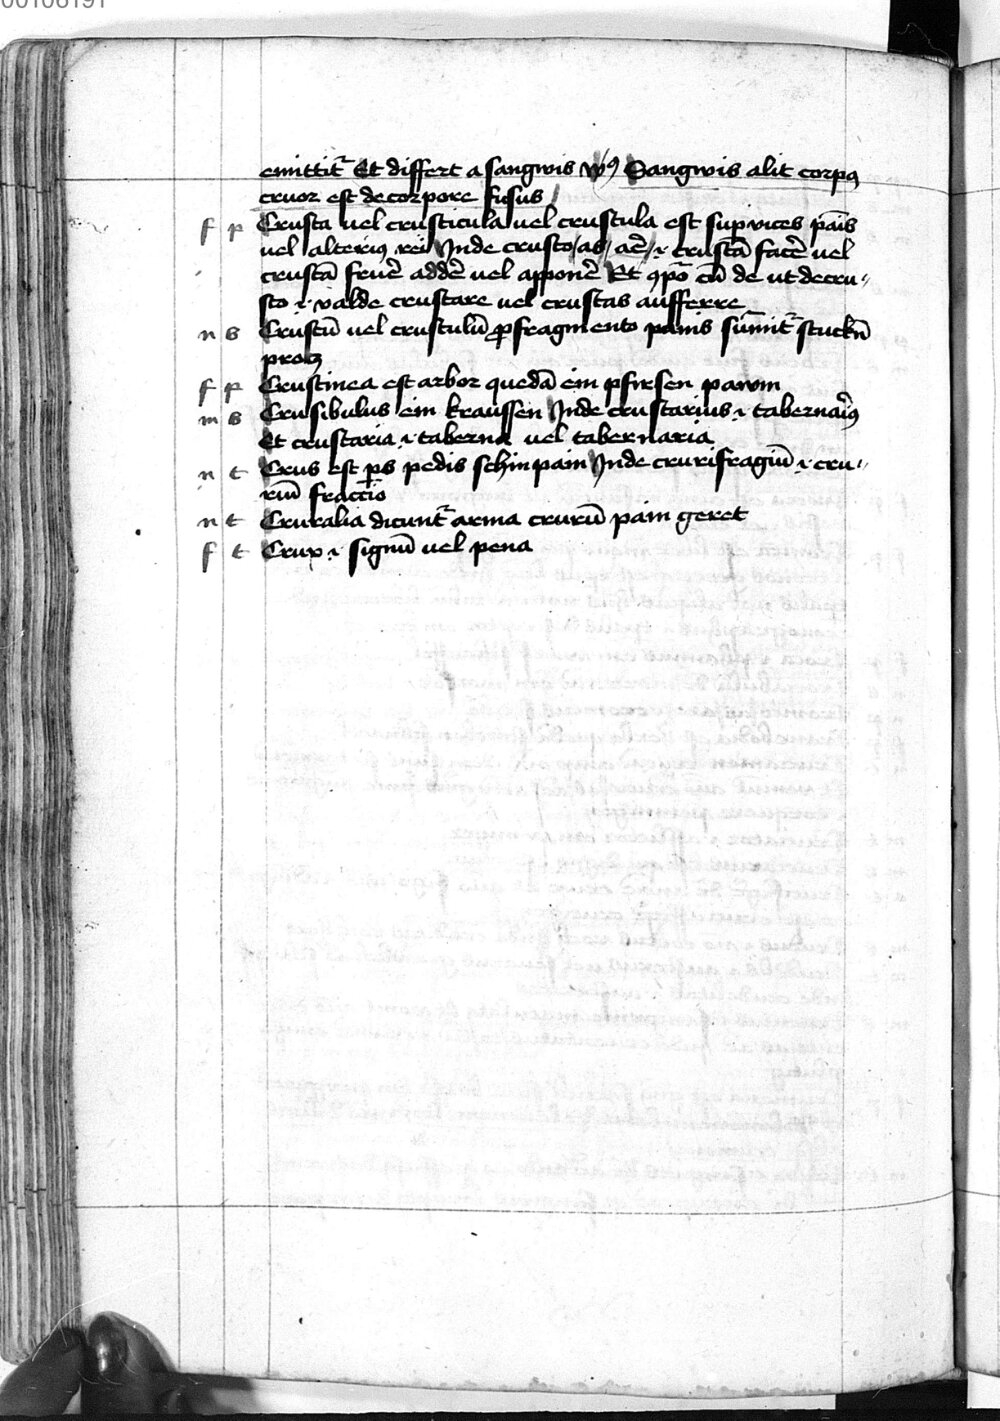 00106191
emittit᷑ Et differt a sangwis vꝰ Sangwis alit corpꝰ
cruor est de corpore fusus
f p Crusta uel crusticula uel crustula est sup̱uices pa̅is
uel alteriꝰ rei Inde crusto / as / ar̄e / .i. crusta̅ face̅ uel
crusta̅ frue̅ adde̅ uel appone̅ Et ꝯpo̅ cu̅ de ut decru„
sto .i. valde crustare uel crustas aufferre
n s Crustu̅ uel crustulu̅ ꝑ fragmento panis su̅mit᷑ stuckn̅
protz
f p Crustinea est arbor queda̅ ein pfirsen pawm
m s Crusibulus ein kraussen Inde crustarius .i. tabernariꝰ
Et crustaria .i. taberna uel tabernaria
n t Crus est ꝑs pedis schinpain Inde crurifragiu̅ .i. cru„
riu̅ fractio
n t Cruralia dicunt᷑ arma cruru̅ pain geret
f t Crux .i. signu̅ uel pena